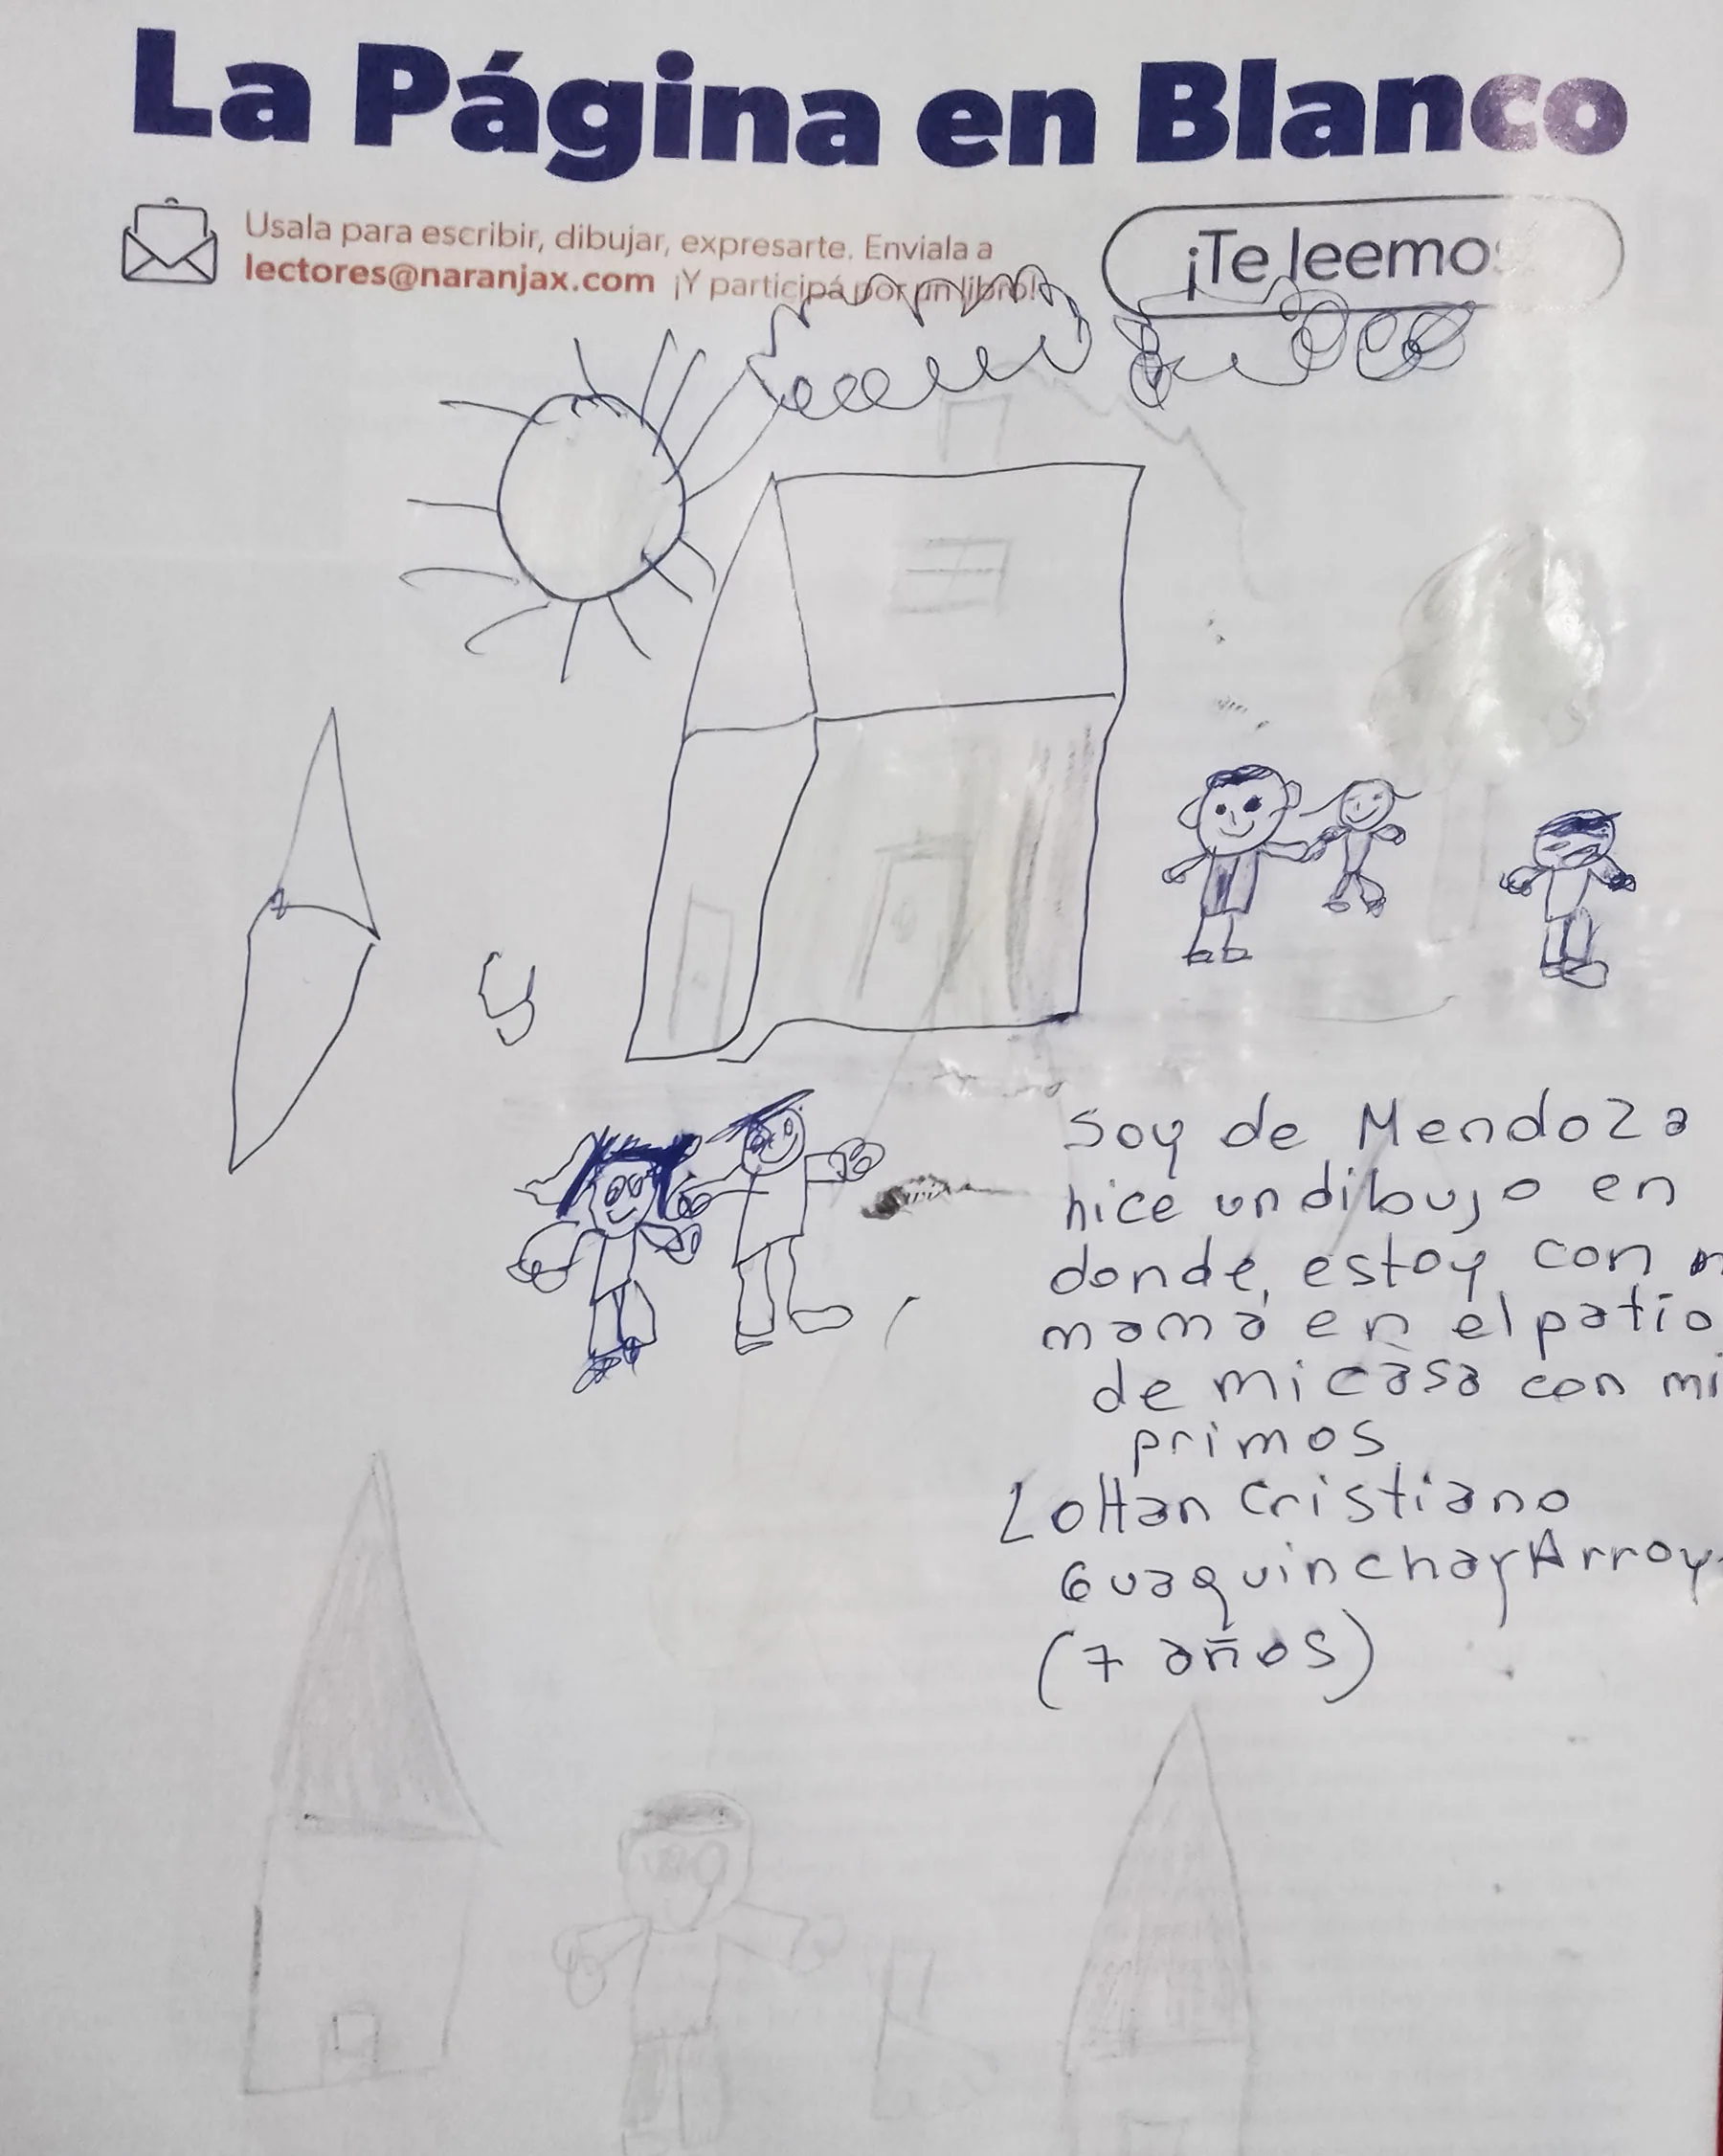 La Página en Blanco
Usala para escribir, dibujar, expresarte. Enviala a
lectores@naranjax.com ¡Y participá por un libro!
¡Te leemos
Soy de Mendoza
hice un dibujo en
donde, estoy con m
mamá en el patio
de mi casa con mi
primos
LoHan Cristiano
Guaquinchay Arroy
(7 años)